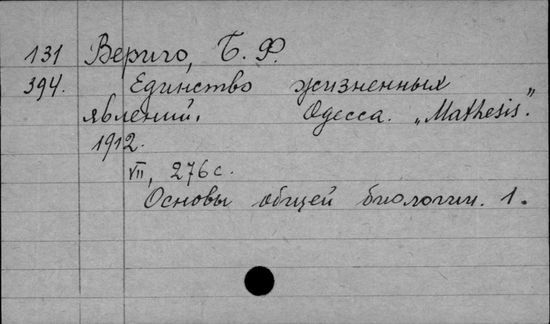 131 Вериго, Б. Ф.
394. Единство жизненных
явлений. Одесса. „Mathesis".
1912.
VII, 276 с.
Основы общей биологии. 1.